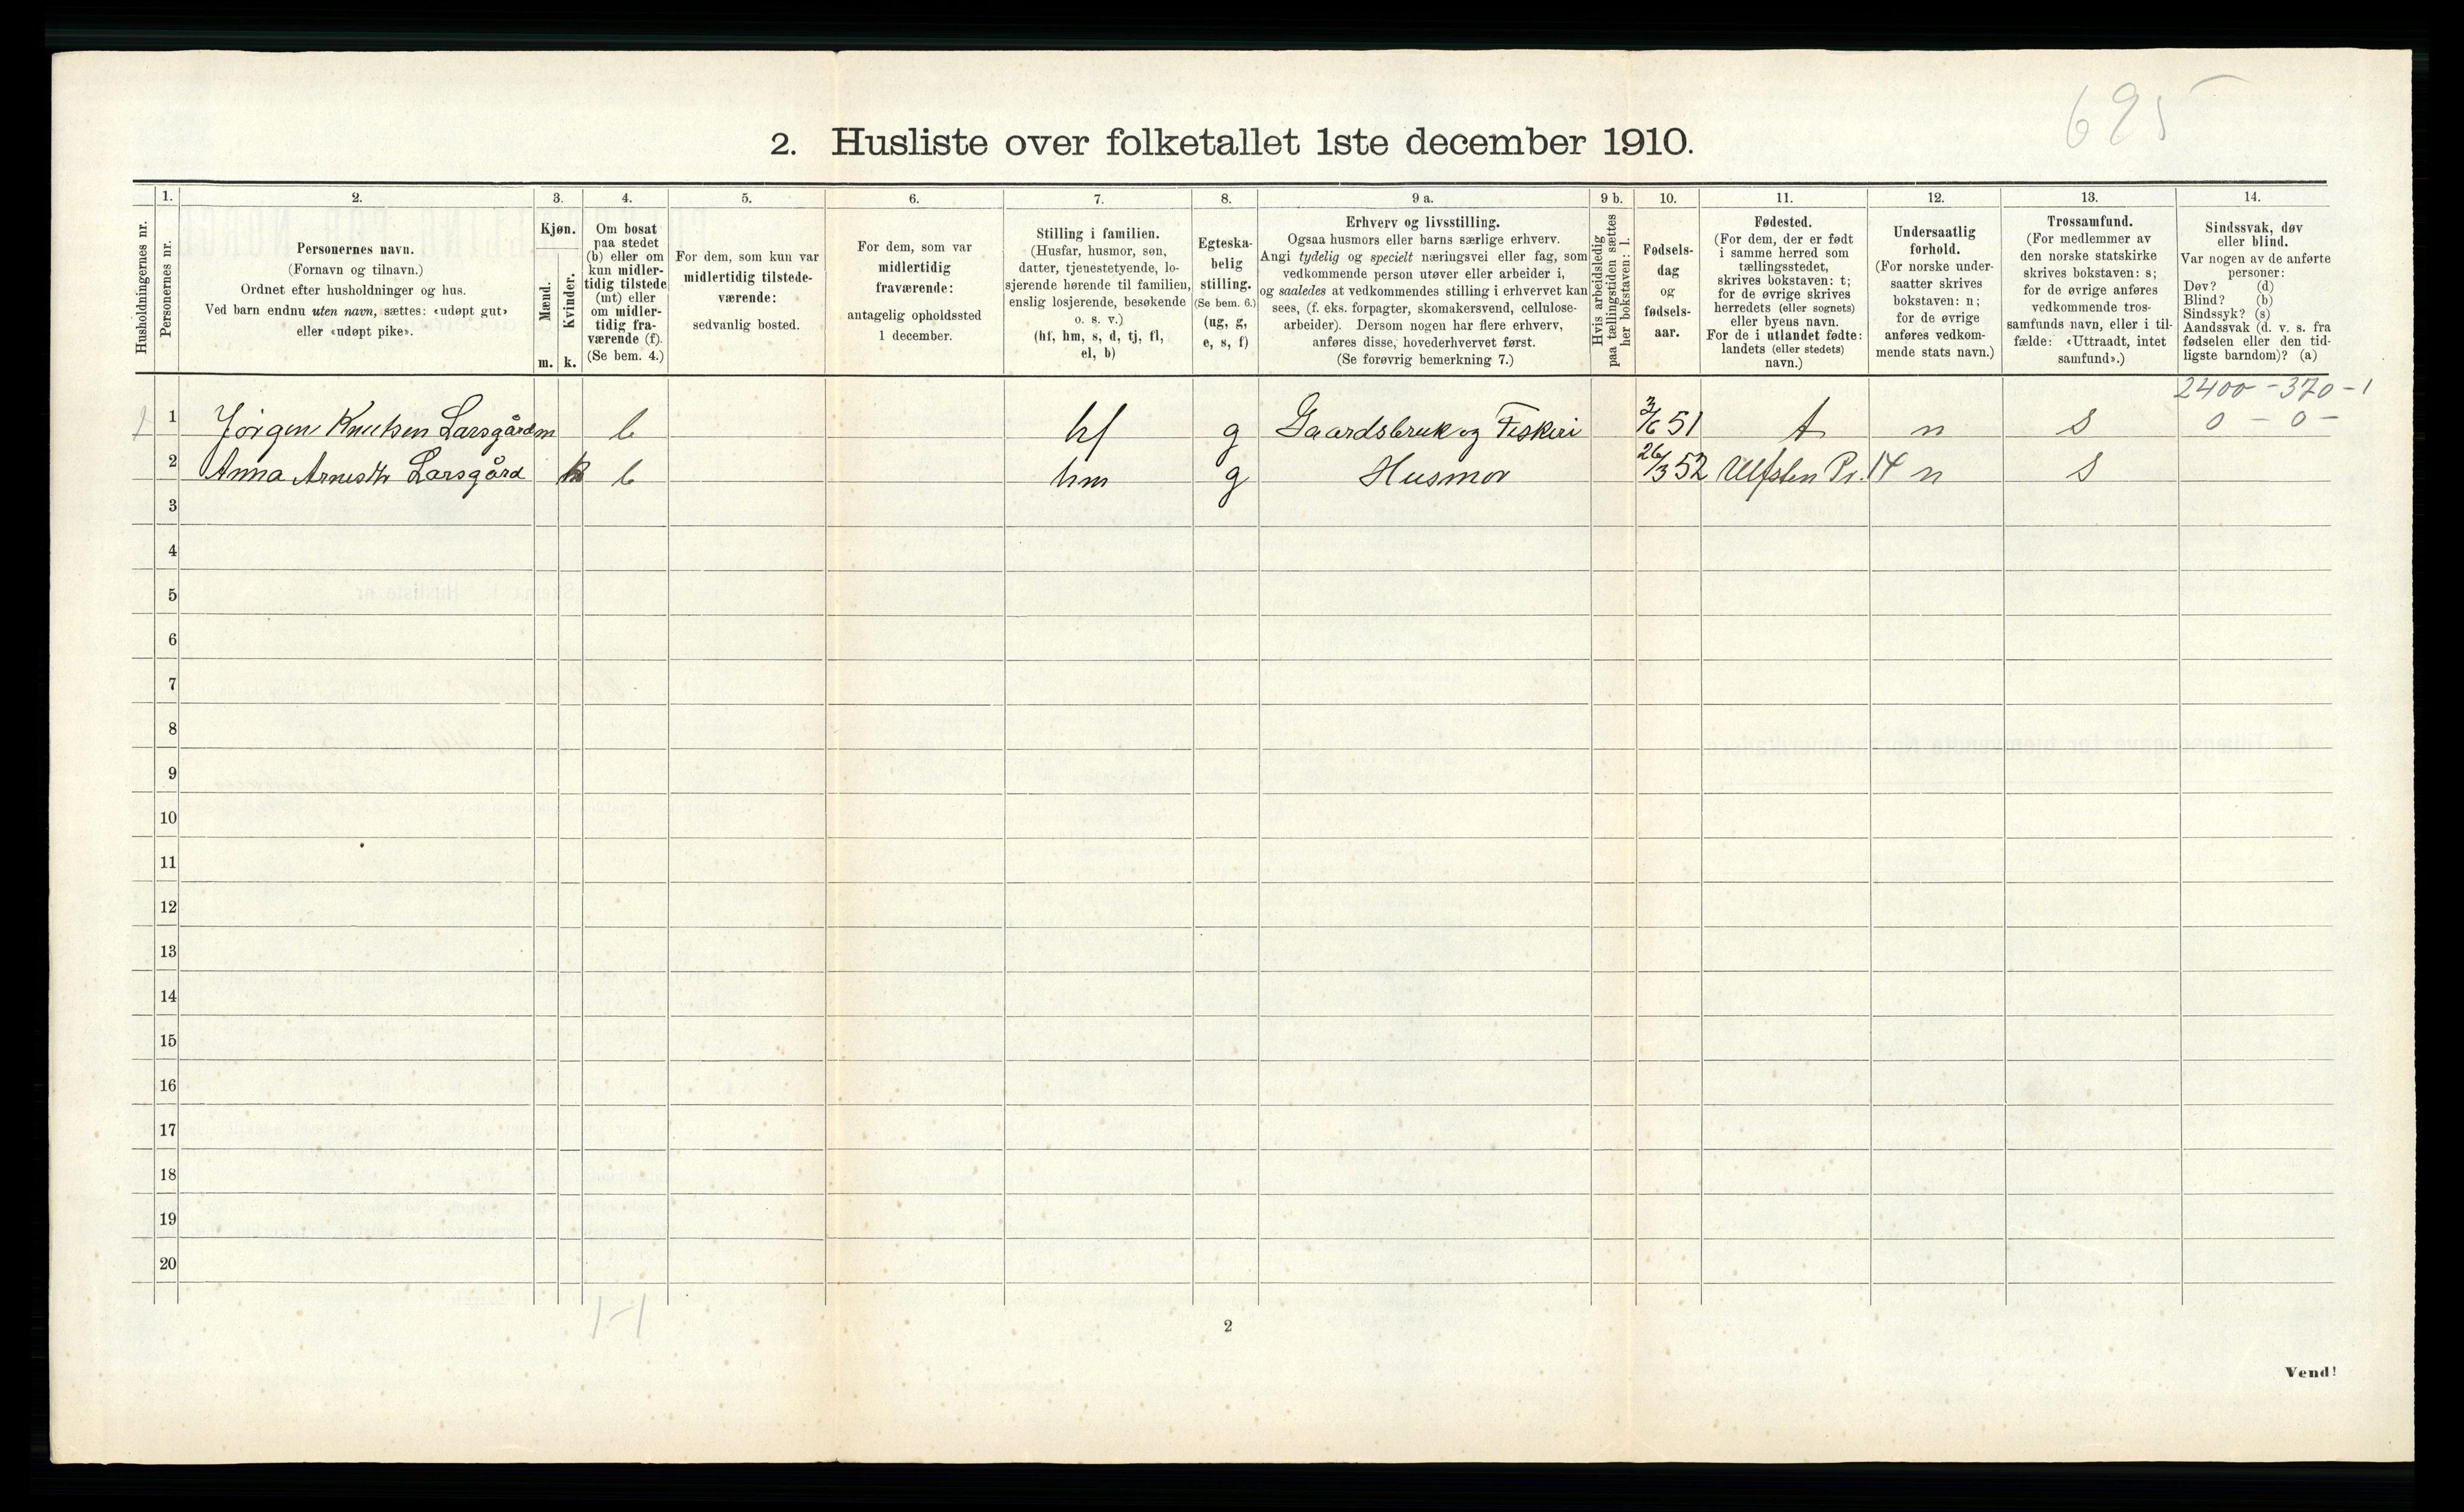 695
2. Husliste over folketallet 1ste december 1910.
Husholdningernes nr.
1.
Personernes nr.
2.
Personernes navn.
(Fornavn og tilnavn.)
Ordnet efter husholdninger og hus.
Ved barn endnu uten navn, sættes: «udøpt gut»
eller «udøpt pike».
3.
Kjøn.
Mænd.
Kvinder.
m. k.
4.
Om bosat
paa stedet
(b) eller om
kun midler-
tidig tilstede
(mt) eller
om midler-
tidig fra-
værende (f).
(Se bem. 4.)
5.
For dem, som kun var
midlertidig tilstede-
værende:
sedvanlig bosted.
6.
For dem, som var
midlertidig
fraværende:
antagelig opholdssted
1 december.
7.
Stilling i familien.
(Husfar, husmor, søn,
datter, tjenestetyende, lo-
sjerende hørende til familien,
enslig losjerende, besøkende
o. s. v.)
(hf, hm, s, d, tj, fl,
el, b)
8.
Egteska-
belig
stilling.
(Se bem. 6.)
(ug, g,
e, s, f)
9 a.
Erhverv og livsstilling.
Ogsaa husmors eller barns særlige erhverv.
Angi tydelig og specielt næringsvei eller fag, som
vedkommende person utøver eller arbeider i,
og saaledes at vedkommendes stilling i erhvervet kan
sees, (f. eks. forpagter, skomakersvend, cellulose-
arbeider). Dersom nogen har flere erhverv,
anføres disse, hovederhvervet først.
(Se forøvrig bemerkning 7.)
9 b.
Hvis arbeidsledig
paa tællingstiden sættes
her bokstaven: l.
10.
Fødsels-
dag
og
fødsels-
aar.
11.
Fødested.
(For dem, der er født
i samme herred som
tællingsstedet,
skrives bokstaven: t;
for de øvrige skrives
herredets (eller sognets)
eller byens navn.
For de i utlandet fødte:
landets (eller stedets)
navn.)
12.
Undersaatlig
forhold.
(For norske under-
saatter skrives
bokstaven: n;
for de øvrige
anføres vedkom-
mende stats navn.)
13.
Trossamfund.
(For medlemmer av
den norske statskirke
skrives bokstaven: s;
for de øvrige anføres
vedkommende tros-
samfunds navn, eller i til-
fælde: «Uttraadt, intet
samfund».)
14.
Sindssvak, døv
eller blind.
Var nogen av de anførte
personer:
Døv? (d)
Blind? (b)
Sindssyk? (s)
Aandssvak (d. v. s. fra
fødselen eller den tid-
ligste barndom)? (a)
2400 - 370 - 1
1 1 Jörgen Knutsen Larsgård m b hf g Gaardsbruk og Fiskeri 3/6 51 t n s 0 - 0 -
2 Anna Arnesdtr Larsgård k b hm g Husmor 26/3 52 Ulfsten Pr. 14 n s
3
4
5
6
7
8
9
10
11
12
13
14
15
16
17
18
19
20
1-1
2
Vend!